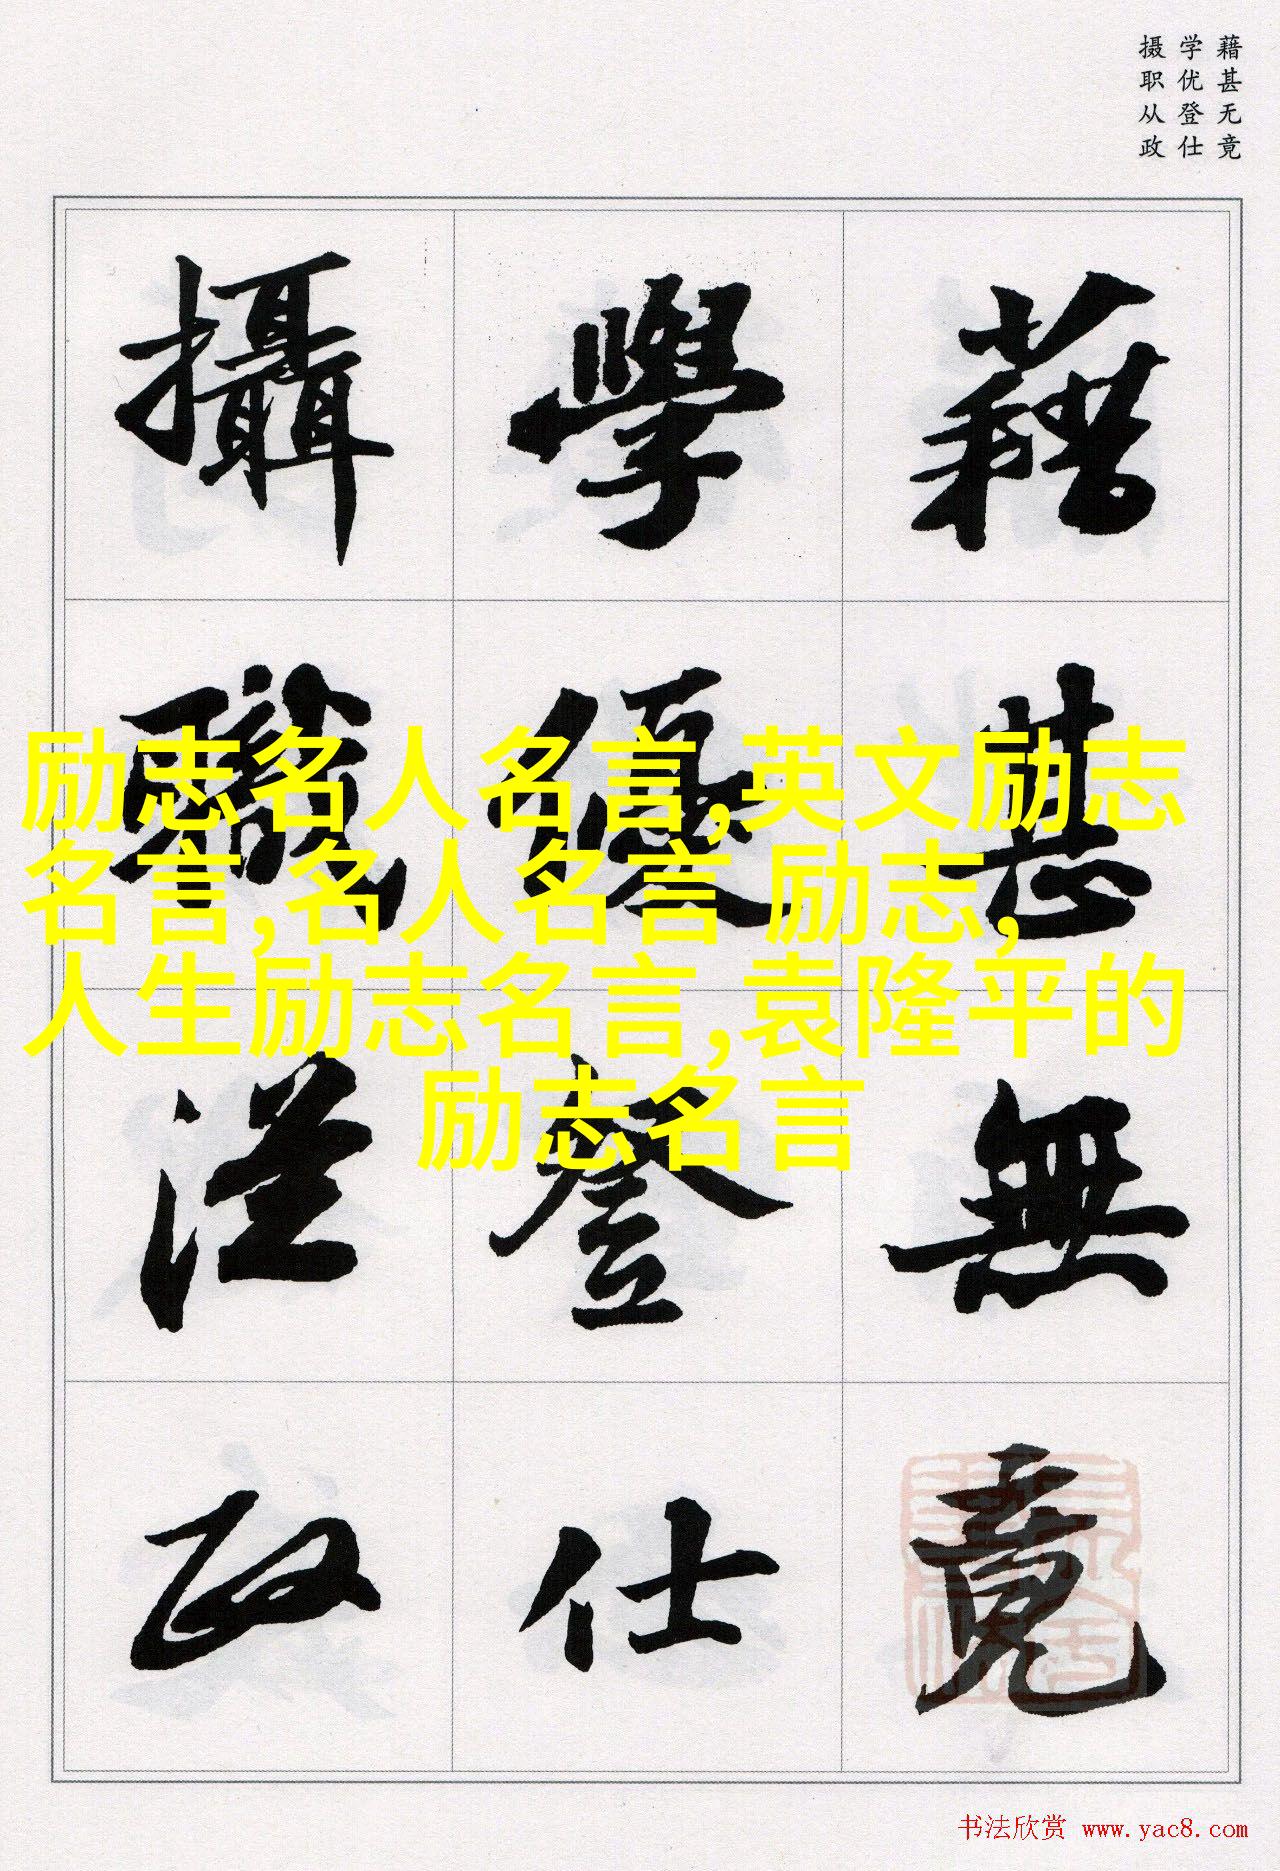 藉甚无竟
学优登仕
摄职从政
藉甚無竟
學優登仕
攝職從政
励志名人名言,英文励志
名言,名人名言 励志,
人生励志名言,袁隆平的
励志名言
书法欣赏 www.yac8.com